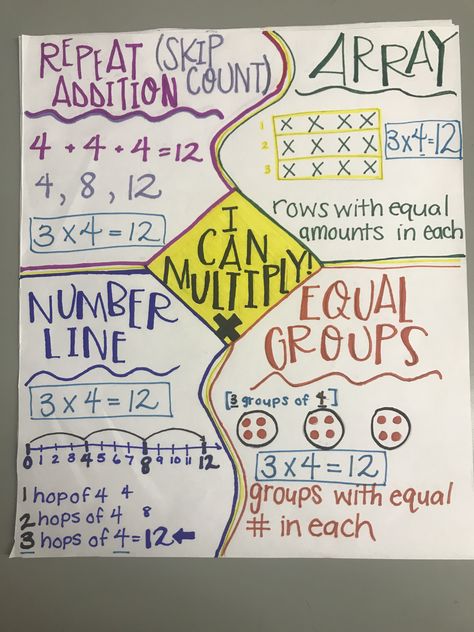 REPEAT (SKIP
ADDITION COUNT)
4 + 4 + 4 = 12
4, 8, 12
3 x 4 = 12
ARRAY
1 x x x x
2 x x x x
3 x x x x
3x4=12
rows with equal
amounts in each
I
CAN
MULTIPLY!
X
NUMBER
LINE
3 x 4 = 12
0 1 2 3 4 5 6 7 8 9 10 11 12
1 hop of 4 4
2 hops of 4 8
3 hops of 4 = 12 ←
EQUAL
GROUPS
[3 groups of 4]
3 x 4 = 12
groups with equal
# in each